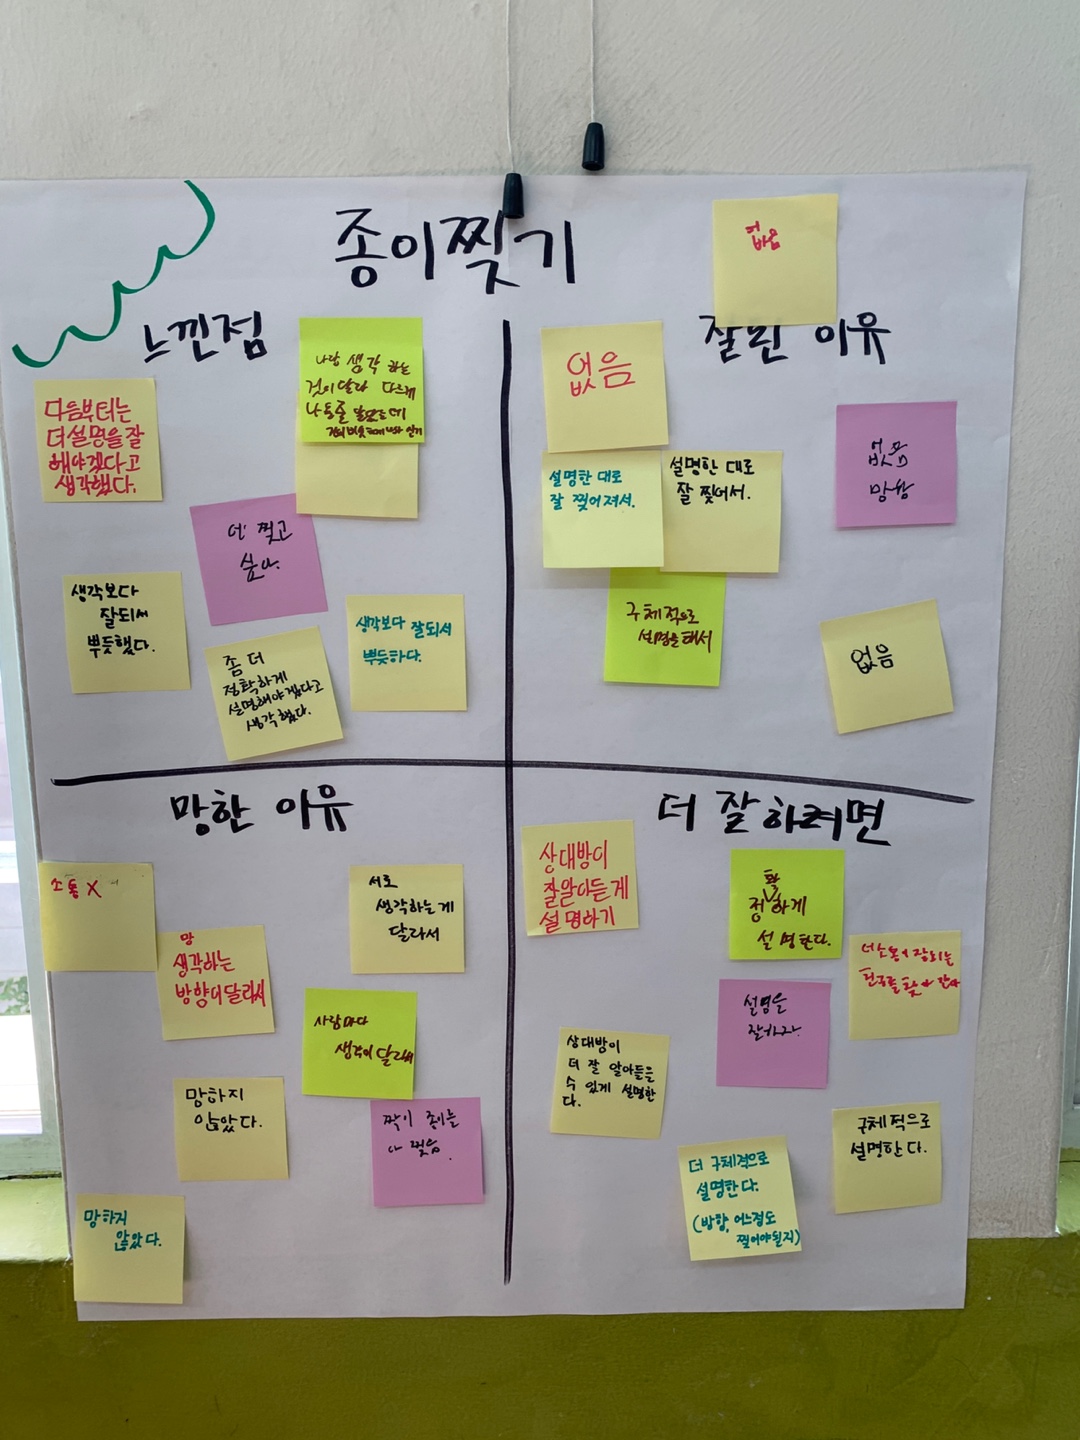 종이찢기
느낀점
다음부터는
더 설명을 잘
해야겠다고
생각했다.
나랑 생각 하는
것이 달라 다르게
더 찢고
싶다.
생각보다
잘되서
뿌듯했다.
좀 더
정확하게
설명해야겠다고
생각했다.
생각보다 잘되서
뿌듯하다.
잘된 이유
없음
없음
설명한 대로
잘 찢어져서.
설명한 대로
잘 찢어서.
없음
망함
구체적으로
설명을해서
없음
망한 이유
소통 X
망
생각하는
방향이달라서
서로
생각하는게
달라서
사람마다
생각이 달라서
망하지
않았다.
짝이 종이를
다 찢음.
망하지
않았다.
더 잘하려면
상대방이
잘알아듣게
설명하기
확
정하게
설명한다.
더소통이 잘되는
친구를찾아 간다
설명을
잘하자.
상대방이
더 잘 알아들을
수 있게 설명한
다.
구체적으로
설명한다.
더 구체적으로
설명한다.
(방향, 어느정도
찢어야될지)